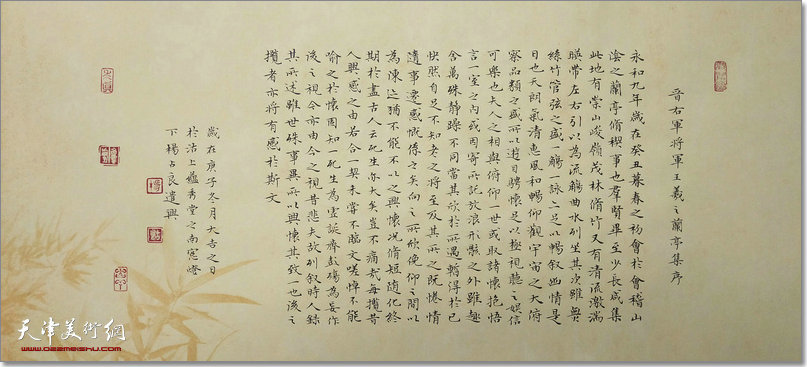 晉右軍將軍王羲之蘭亭集序
永和九年歲在癸丑暮春之初會於會稽山
陰之蘭亭脩稧事也羣賢畢至少長咸集
此地有崇山峻嶺茂林脩竹又有清流激湍
暎帶左右引以為流觴曲水列坐其次雖無
絲竹管弦之盛一觴一詠亦足以暢叙幽情是
日也天朗氣清惠風和暢仰觀宇宙之大俯
察品類之盛所以遊目騁懷足以極視聽之娛信
可樂也夫人之相與俯仰一世或取諸懷抱悟
言一室之內或因寄所託放浪形骸之外雖趣
舍萬殊靜躁不同當其欣於所遇暫得於己
快然自足不知老之將至及其所之既惓情
隨事遷感慨係之矣向之所欣俛仰之間以
為陳迹猶不能不以之興懷況脩短隨化終
期於盡古人云死生亦大矣豈不痛哉每攬昔
人興感之由若合一契未嘗不臨文嗟悼不能
喻之於懷固知一死生為虛誕齊彭殤為妄作
後之視今亦由今之視昔悲夫故列叙時人録
其所述雖世殊事異所以興懷其致一也後之
攬者亦將有感於斯文
歲在庚子冬月大吉之日
於沽上藴秀堂之南窗燈
下楊占良遣興
天津美術網
www.022meishu.com